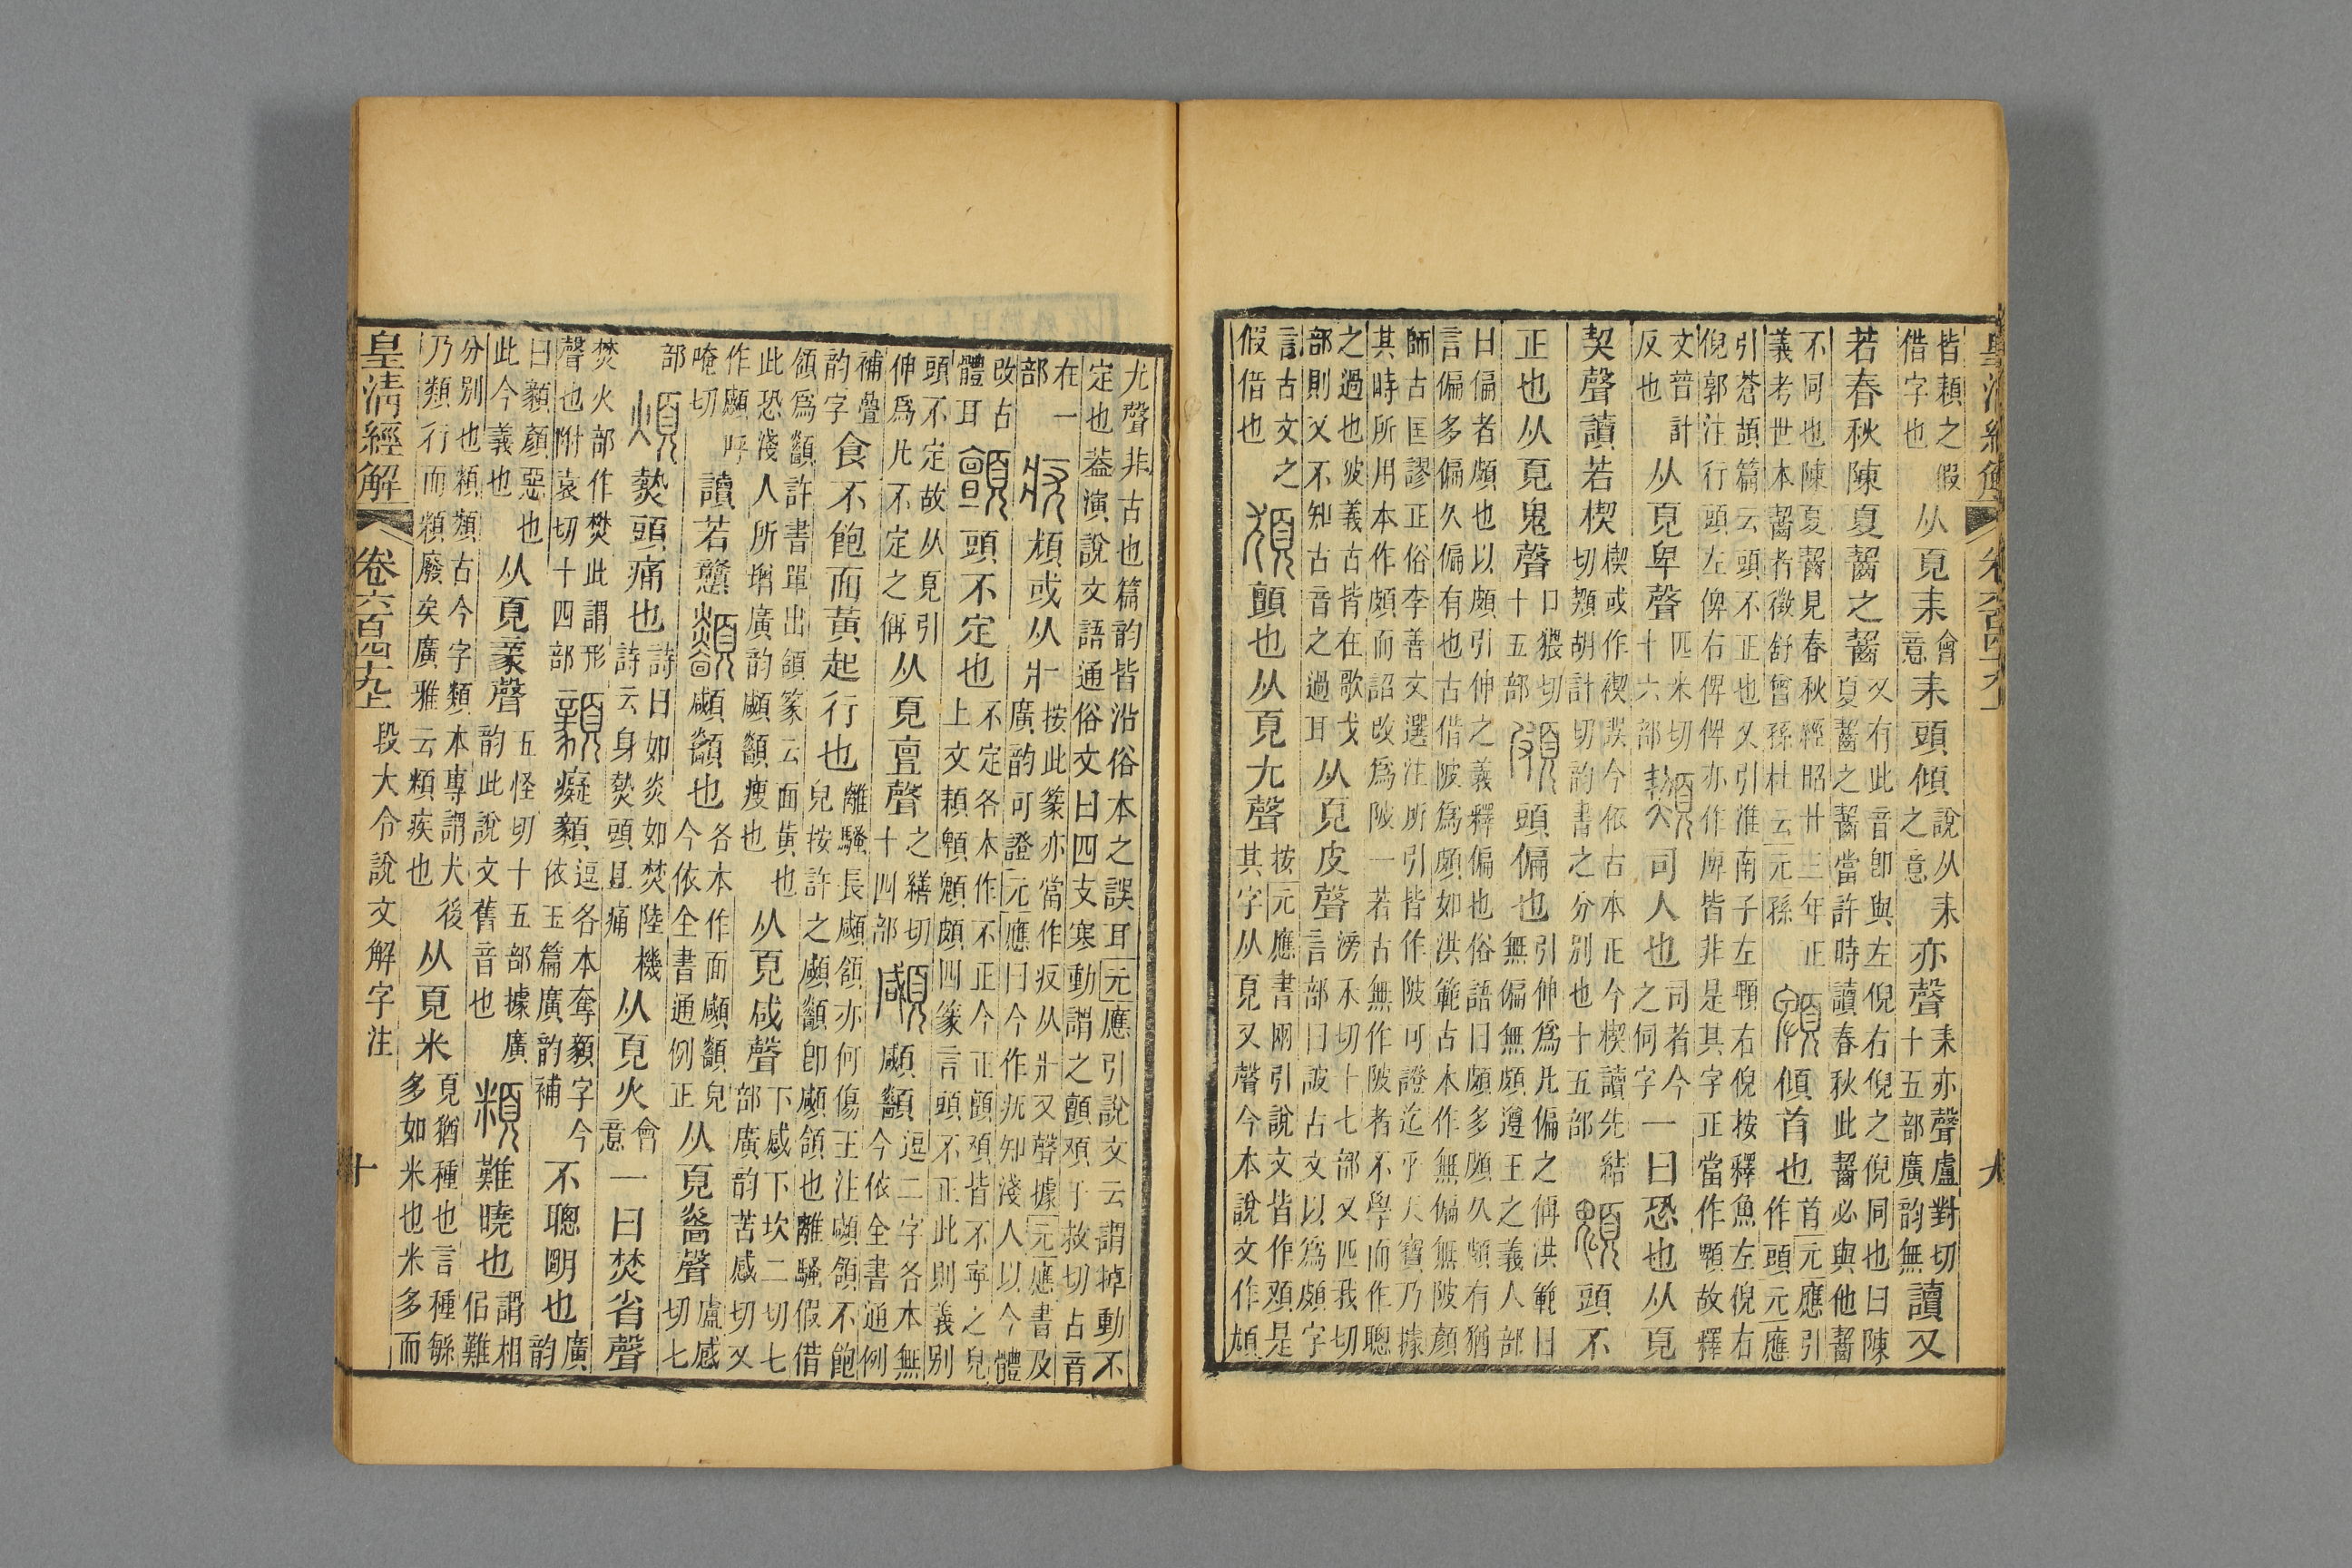 皇清經解 卷六百四十九上
皆頛之假借字也从頁耒會意耒頭傾說从耒之意亦聲耒亦聲盧對切十五部廣韵無讀又
若春秋陳夏齧之齧又有此音卽與左倪右倪之倪同也曰陳夏齧之齧當許時讀春秋此齧必與他齧
不同也陳夏齧見春秋經昭廿三年正義考世本齧者徵舒曾孫杜云元孫傾首也首元應引作頭元應
引蒼頡篇云頭不正也又引淮南子左顊右倪按釋魚左倪右倪郭注行頭左俾右俾俾亦作庳皆非是其字正當作顊故釋
文普計反也从頁卑聲匹米切十六部司人也司者今之伺字一曰恐也从頁
契聲讀若楔楔或作禊誤今依古本正今楔讀先結切胡計切韵書之分別也十五部頭不
正也从頁鬼聲口猥切十五部頗頭偏也引伸爲凡偏之偁洪範曰無偏無頗遵王之義人部
曰偏者頗也以頗引伸之義釋偏也俗語曰頗多頗久頗有猶言偏多偏久偏有也古借陂爲頗如洪範古本作無偏無陂顏
師古匡謬正俗李善文選注所引皆作陂可證迄乎天寶乃據其時所用本作頗而詔改爲陂一若古無作陂者不學而作聰
之過也彼義古皆在歌戈部則又不知古音之過耳从頁皮聲滂禾切十七部又匹我切言部曰詖古文以爲頗字
言古文之假借也顫也从頁尢聲按元應書兩引說文皆作是其字从頁又聲今本說文作頄
尢聲非古也篇韵皆沿俗本之誤耳元應引說文云謂掉動不定也葢演說文語通俗文曰四支寒動謂之顫于救切古音
在一部或从疒按此篆亦當作从疒又聲據元應書及廣韵可證元應曰今作疣知淺人以今體
改古體耳顫頭不定也不定各本作不正今正顫皆不寧之皃上文頛頗四篆言頭不正此則義別
頭不定故从頁引伸爲凡不定之偁从頁亶聲之繕切十四部顑顑顲逗二字各本無今依全書通例
補疊韵字食不飽面黃起行也離騷長顑頷亦何傷王注顑頷不飽皃按許之顑顲卽顑頷也離騷假借
頷爲顲許書單出頷篆云面黃也此恐淺人所增廣韵顑顲瘦也从頁咸聲下感下坎二切七部廣韵苦感切又
作顑呼唵切讀若戇顲顑顲也各本作面顑顲皃今依全書通例正从頁㐭聲盧感切七
部煩熱頭痛也詩曰如炎如焚陸機詩云身熱頭且痛从頁火會意一曰焚省聲
焚火部作焚此謂形聲也附袁切十四部顡癡顡逗各本奪顡字今依玉篇廣韵補不聰明也廣韵
曰顡顏惡也此今義也从頁豙聲五怪切十五部據廣韵此說文舊音也頪難曉也謂相佀難
分別也頪類古今字類本專謂犬後乃類行而頪廢矣廣雅云頪疾也从頁米頁猶種也言種緐多如米也米多而
皇清經解 卷六百四十九上 段大令說文解字注 十